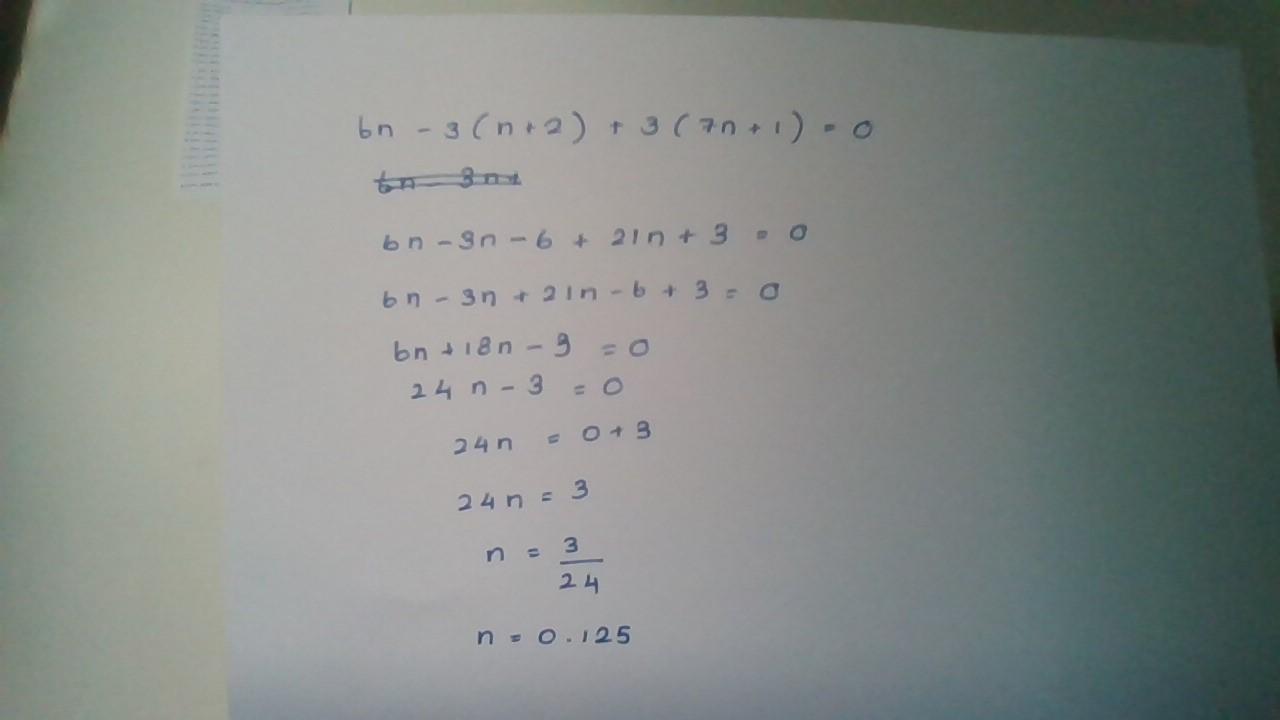 6n - 3(n+2) + 3(7n+1) = 0
6n - 3n+
6n - 3n - 6 + 21n + 3 = 0
6n - 3n + 21n - 6 + 3 = 0
6n + 18n - 3 = 0
24n - 3 = 0
24n = 0 + 3
24n = 3
n = 3/24
n = 0.125